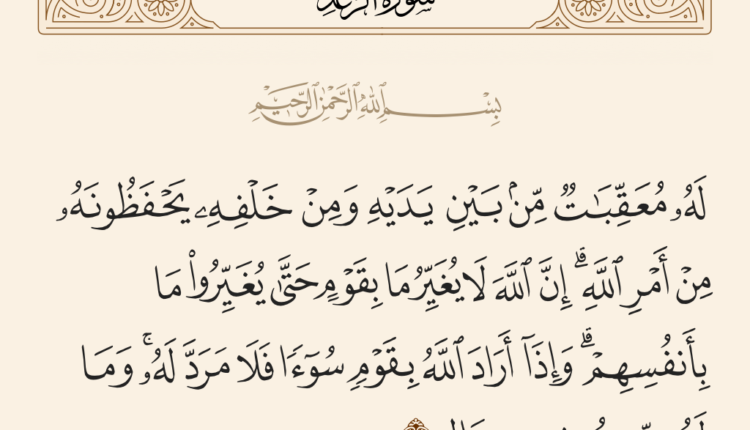 سورة الرعد
بِسْمِ ٱللَّهِ ٱلرَّحْمَٰنِ ٱلرَّحِيمِ
لَهُۥ مُعَقِّبَٰتٌ مِّنۢ بَيْنِ يَدَيْهِ وَمِنْ خَلْفِهِۦ يَحْفَظُونَهُۥ
مِنْ أَمْرِ ٱللَّهِ ۗ إِنَّ ٱللَّهَ لَا يُغَيِّرُ مَا بِقَوْمٍ حَتَّىٰ يُغَيِّرُوا۟ مَا
بِأَنفُسِهِمْ ۗ وَإِذَآ أَرَادَ ٱللَّهُ بِقَوْمٍ سُوٓءًا فَلَا مَرَدَّ لَهُۥ ۚ وَمَا